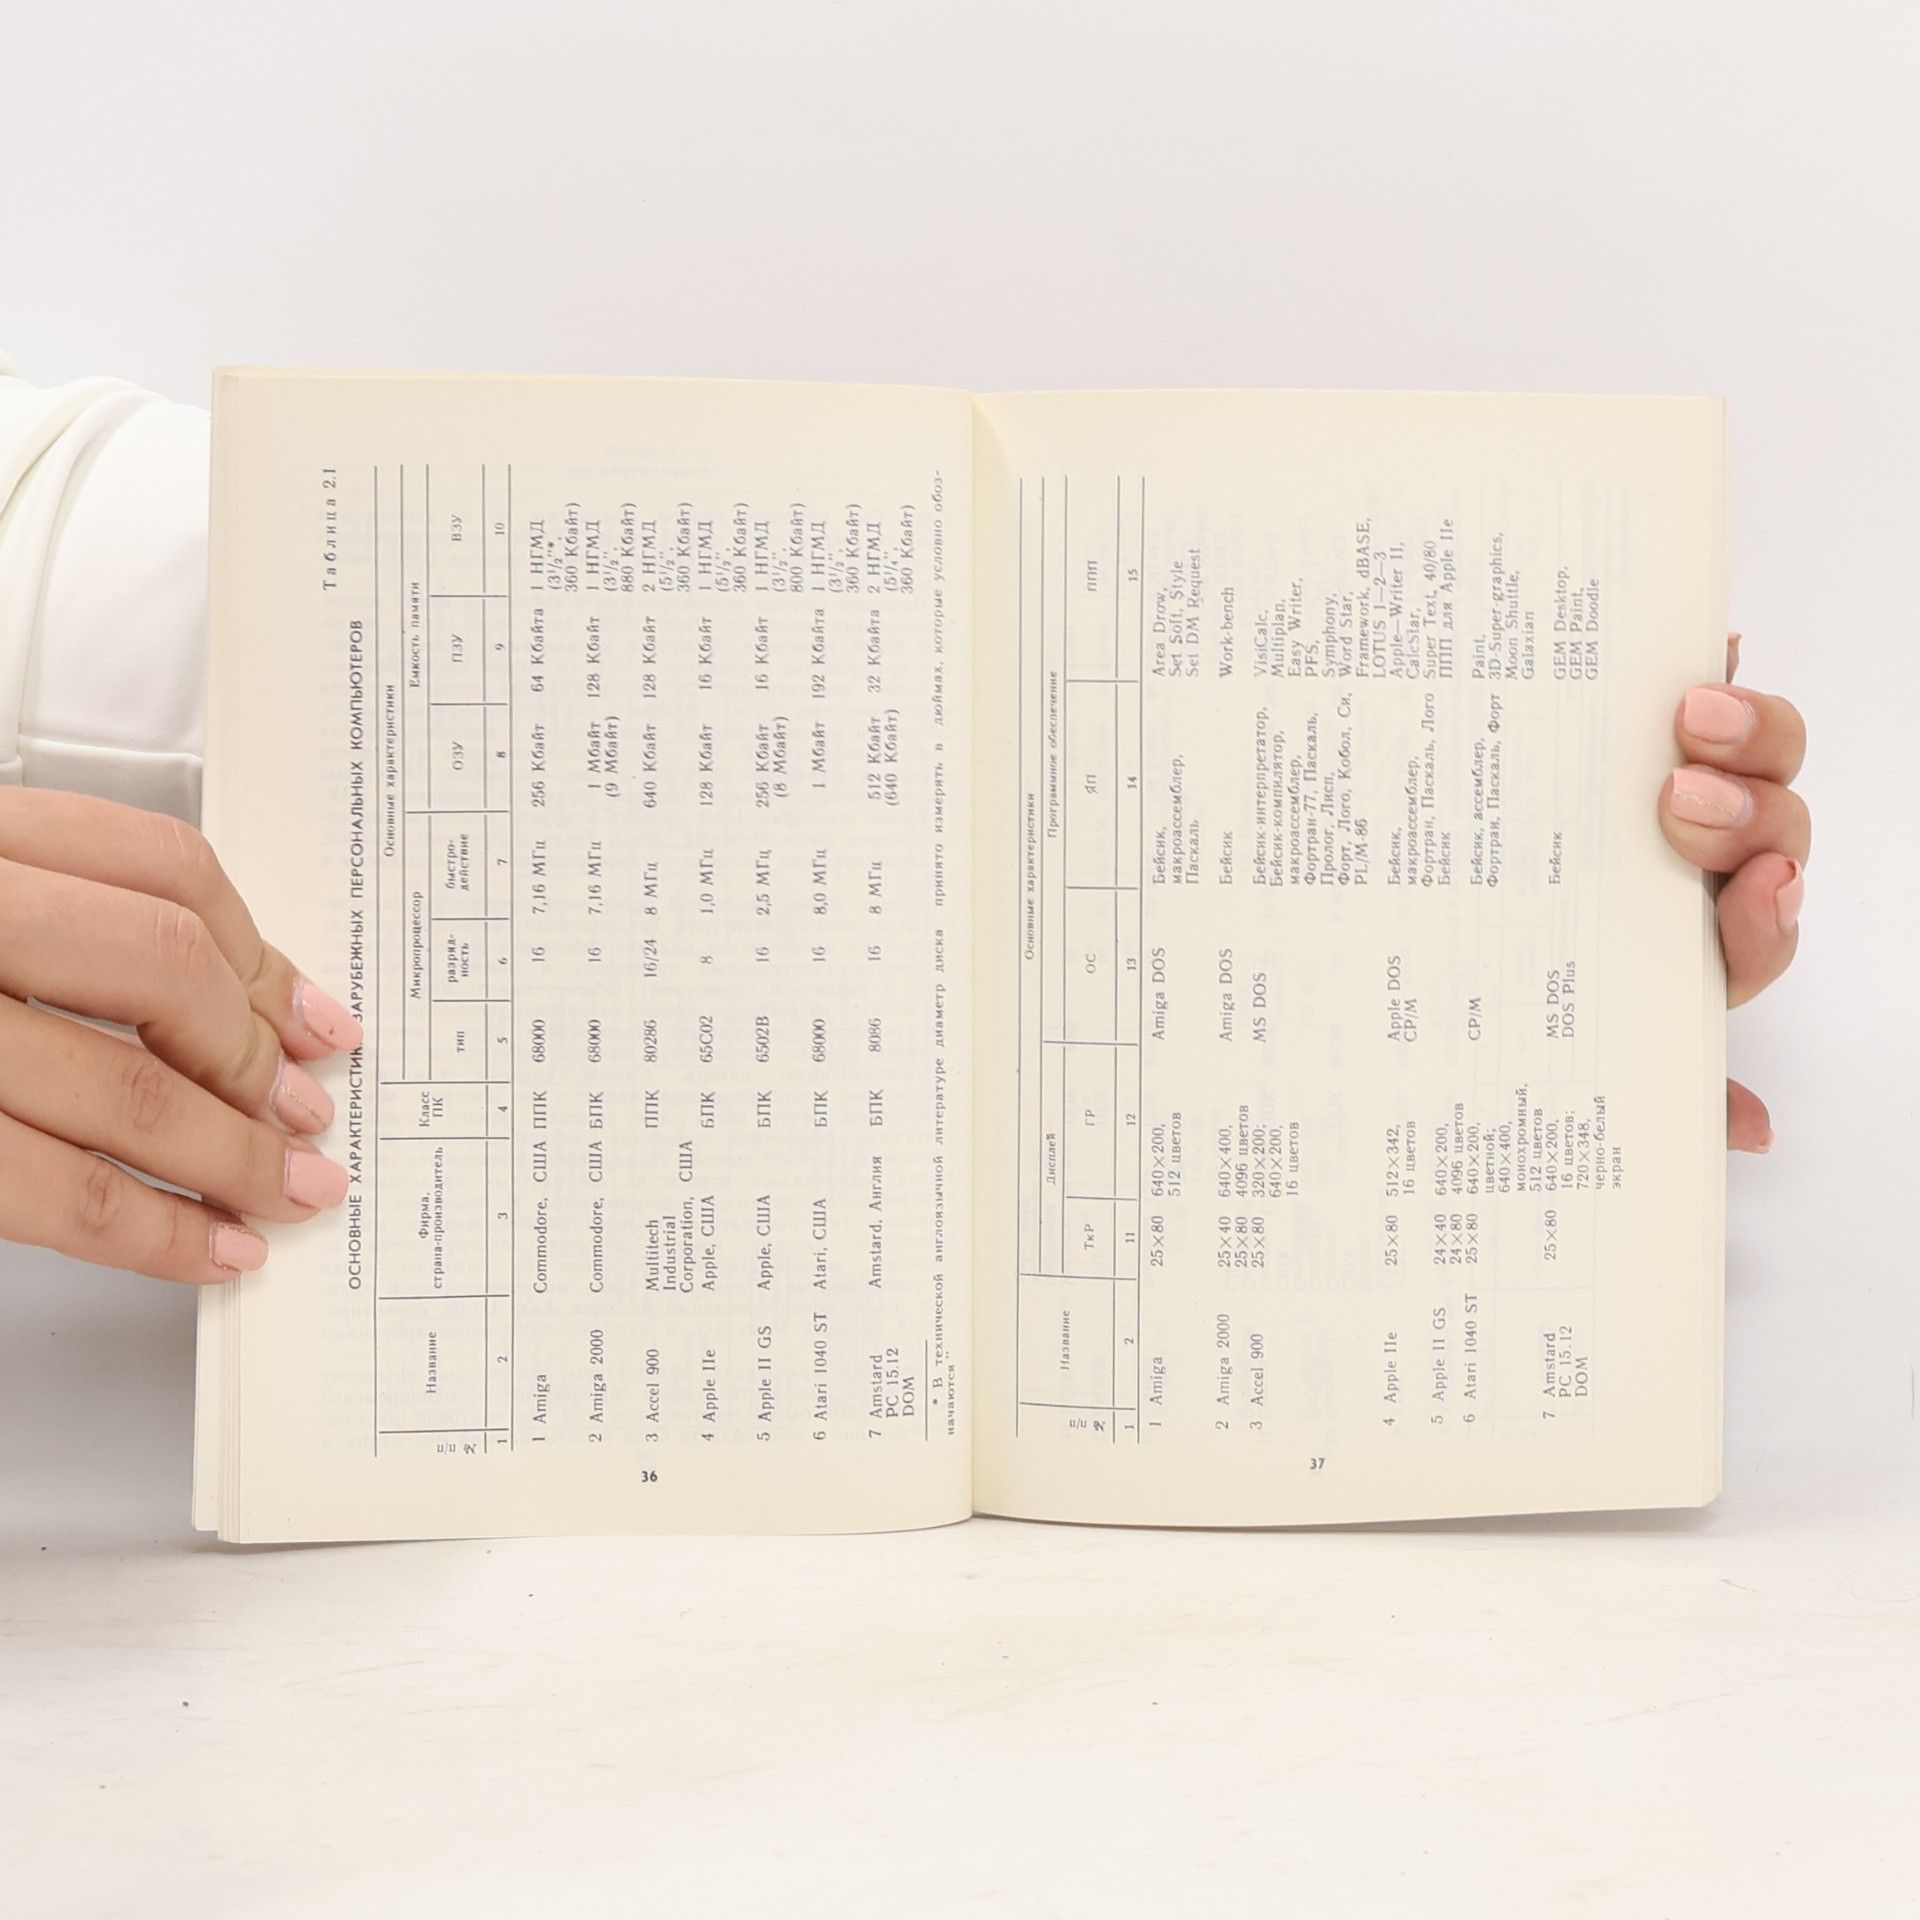 Таблица 2.1
ОСНОВНЫЕ ХАРАКТЕРИСТИК ЗАРУБЕЖНЫХ ПЕРСОНАЛЬНЫХ КОМПЬЮТЕРОВ
Основные характеристики
Микропроцессор Емкость памяти
№ п/п Название Фирма, страна-производитель Класс ПК тип разряд-ность быстро-действие ОЗУ ПЗУ ВЗУ
1 2 3 4 5 6 7 8 9 10
1 Amiga Commodore, США ППК 68000 16 7,16 МГц 256 Кбайт 64 Кбайта 1 НГМД
(3 1/2''*,
360 Кбайт)
2 Amiga 2000 Commodore, США БПК 68000 16 7,16 МГц 1 Мбайт 128 Кбайт 1 НГМД
(9 Мбайт) (3 1/2'',
880 Кбайт)
3 Accel 900 Multitech ППК 80286 16/24 8 МГц 640 Кбайт 128 Кбайт 2 НГМД
Industrial (5 1/2'',
Corporation, США 360 Кбайт)
4 Apple IIe Apple, США БПК 65C02 8 1,0 МГц 128 Кбайт 16 Кбайт 1 НГМД
(5 1/2'',
360 Кбайт)
5 Apple II GS Apple, США БПК 6502B 16 2,5 МГц 256 Кбайт 16 Кбайт 1 НГМД
(8 Мбайт) (3 1/2'',
800 Кбайт)
6 Atari 1040 ST Atari, США БПК 68000 16 8,0 МГц 1 Мбайт 192 Кбайта 1 НГМД
(3 1/2'',
360 Кбайт)
7 Amstard Amstard, Англия БПК 8086 16 8 МГц 512 Кбайт 32 Кбайта 2 НГМД
PC 15.12 (640 Кбайт) (5 1/4'',
DOM 360 Кбайт)
* В технической англоязычной литературе диаметр диска принято измерять в дюймах, которые условно обоз-
начаются ''
36
Основные характеристики
Дисплей Программное обеспечение
№ п/п Название ТкР ГР ОС ЯП ППП
1 2 11 12 13 14 15
1 Amiga 25×80 640×200, Amiga DOS Бейсик, Area Drow,
512 цветов макроассемблер, Set Soft, Style
Паскаль Set DM Request
2 Amiga 2000 25×40 640×400, Amiga DOS Бейсик Work-bench
25×80 4096 цветов
3 Accel 900 25×80 320×200; MS DOS Бейсик-интерпретатор, VisiCalc,
640×200, Бейсик-компилятор, Multiplan,
16 цветов макроассемблер, Easy Writer,
Фортран-77, Паскаль, PFS,
Пролог, Лисп, Symphony,
Форт, Лого, Кобол, Си, Word Star,
PL/M-86 Framework, dBASE,
LOTUS 1—2—3
4 Apple IIe 25×80 512×342, Apple DOS Бейсик, Apple—Writer II,
16 цветов CP/M макроассемблер, CalcStar,
Фортран, Паскаль, Лого Super Text, 40/80
5 Apple II GS 24×40 640×200, Бейсик ППП для Apple IIe
24×80 4096 цветов
6 Atari 1040 ST 25×80 640×200, CP/M Бейсик, ассемблер, Paint,
цветной; Фортран, Паскаль, Форт 3D-Super-graphics,
640×400, Moon Shuttle,
монохромный, Galaxian
512 цветов
7 Amstard 25×80 640×200, MS DOS Бейсик GEM Desktop,
PC 15.12 16 цветов; DOS Plus GEM Paint,
DOM 720×348, GEM Doodle
черно-белый
экран
37